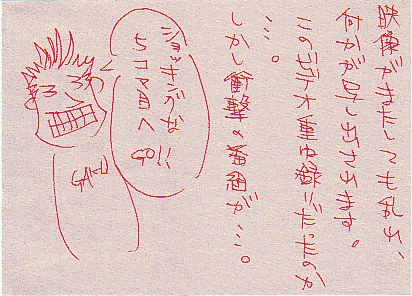 映像がまたしても乱れ、
何かが写し出されます。
このビデオ重ね録りだったのか
…。
しかし衝撃の番組が…。
ショッキングな
5コマ目へ
GO!!